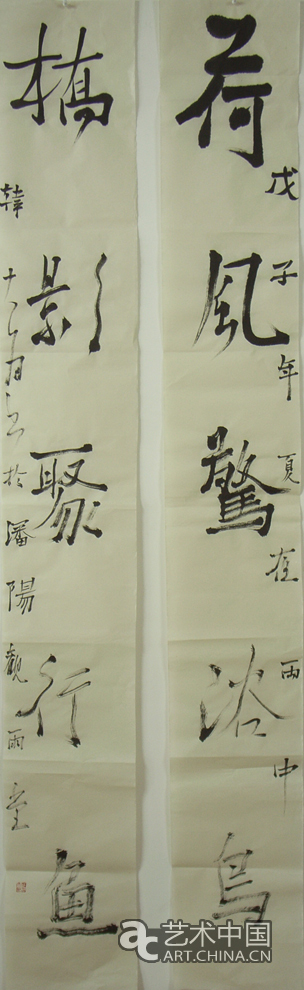 荷風驚浴鳥
戊子年夏在雨中
橋影聚行魚
韓 十 月 於瀋陽觀雨堂
ac 艺术中国
ART.CHINA.CN